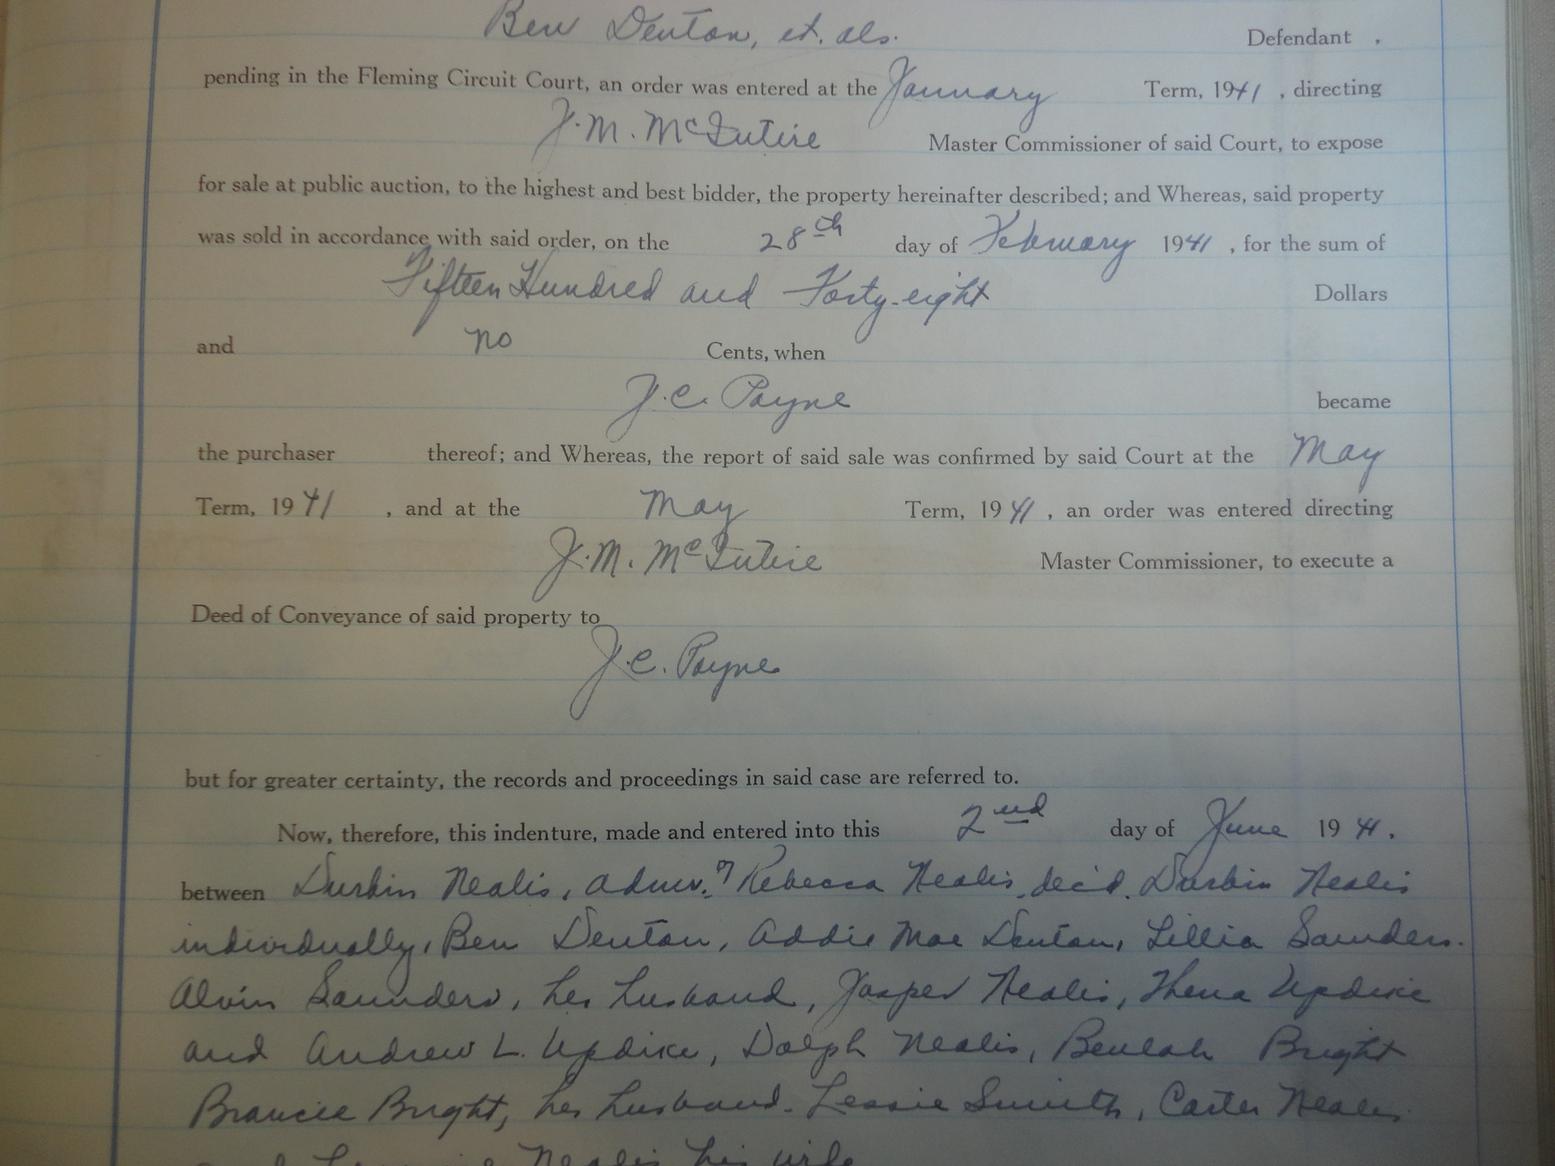 Ben Denton, et. als. Defendant ,
pending in the Fleming Circuit Court, an order was entered at the January Term, 1941 , directing
J. M. McIntire Master Commissioner of said Court, to expose
for sale at public auction, to the highest and best bidder, the property hereinafter described; and Whereas, said property
was sold in accordance with said order, on the 28th day of February 1941 , for the sum of
Fifteen Hundred and Forty-eight Dollars
and no Cents, when
J. C. Payne became
the purchaser thereof; and Whereas, the report of said sale was confirmed by said Court at the May
Term, 1941 , and at the May Term, 1941 , an order was entered directing
J. M. McIntire Master Commissioner, to execute a
Deed of Conveyance of said property to
J. C. Payne
but for greater certainty, the records and proceedings in said case are referred to.
Now, therefore, this indenture, made and entered into this 2nd day of June 1941.
between Durbin Nealis, admr. of Rebecca Nealis, dec'd. Durbin Nealis
individually, Ben Denton, Addie Mae Denton, Lillia Saunders.
Alvin Saunders, her husband, Jasper Nealis, Thena Updike
and Andrew L. Updike, Dolph Nealis, Beulah Bright
Bright, her husband. Lessie Smith, Carter Nealis
Nealis his wife